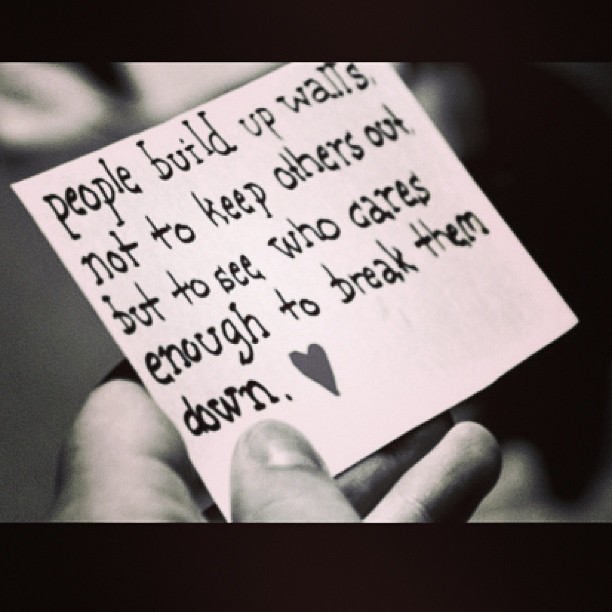 people build up walls,
not to keep others out,
but to see who cares
enough to break them
down.